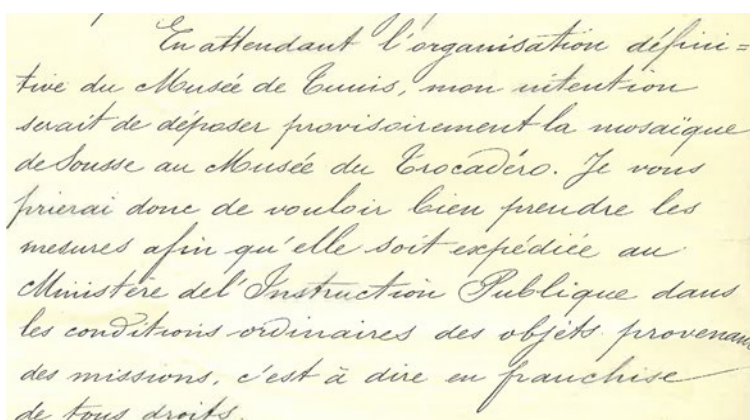 En attendant l'organisation défini=
tive du Musée de Tunis, mon intention
serait de déposer provisoirement la mosaïque
de Sousse au Musée du Trocadéro. Je vous
prierai donc de vouloir bien prendre les
mesures afin qu'elle soit expédiée au
Ministère de l'Instruction Publique dans
les conditions ordinaires des objets provenan
des missions, c'est à dire en franchise
de tous droits.